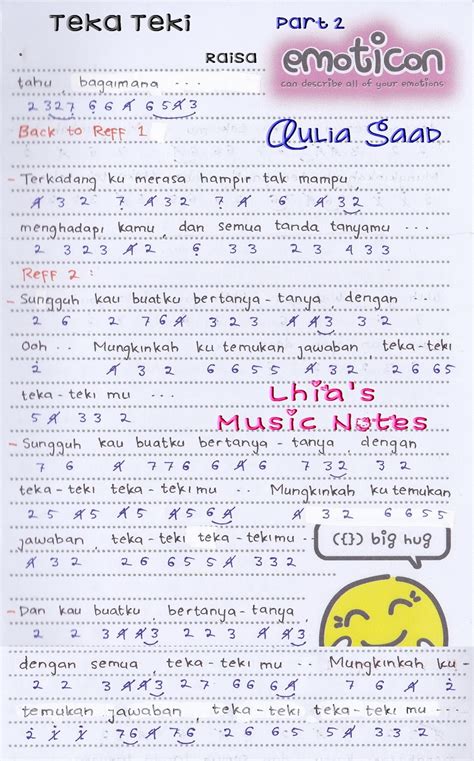 Teka Teki Part 2
Raisa
emoticon
can describe all of your emotions
tahu, bagaimana ...
2 3 2 7 6 6 4̸ 6 5 4̸ 3
Back to Reff 1
Qulia Saad
- Terkadang ku merasa hampir tak mampu,
4̸ 3 2 7 4̸ 3 2 7 4̸ 6 4̸ 3 2
menghadapi kamu, dan semua tanda tanyamu ...
2 3 2 3 4̸ 2 6 3 3 2 3 4 3 3
Reff 2 :
- Sungguh kau buatku bertanya-tanya, dengan ...
2 6 2 7 6 4̸ 3 2 3 4̸ 4̸ 3 3 2
Ooh .. Mungkinkah ku temukan jawaban, teka-teki
2 4̸ 3 2 6 6 5 5 4̸ 3 2 2 6 6 5
teka-teki mu ..
5 4̸ 3 3 2
Lhia's
Music Notes
- Sungguh kau buatku bertanya-tanya, dengan
7 6 4̸ 7 7 6 6 4̸ 6 7 3 2 3 2
teka-teki teka-teki mu .. Mungkinkah ku temukan
2 5 4̸ 5 4̸ 5 4̸ 5 6 4̸ 4̸ 3 2 6 6 5 5
jawaban, teka-teki teka-teki mu ..
4̸ 3 2 2 6 6 5 5 4̸ 3 3 2
({}) big hug
- Dan kau buatku, bertanya-tanya,
2 2 3 4̸ 4̸ 3 2 2 3 4̸ 4̸ 3
dengan semua, teka-teki mu .. Mungkinkah ku-
2 2 3 4̸ 4̸ 3 2 7 6 6 6 4̸ 7 6 4̸ 2
temukan jawaban, teka-teki teka-teki mu ...
2 1̸ 1̸ 7 6 4̸ 7 6 2 2 6 6 6 6 4̸